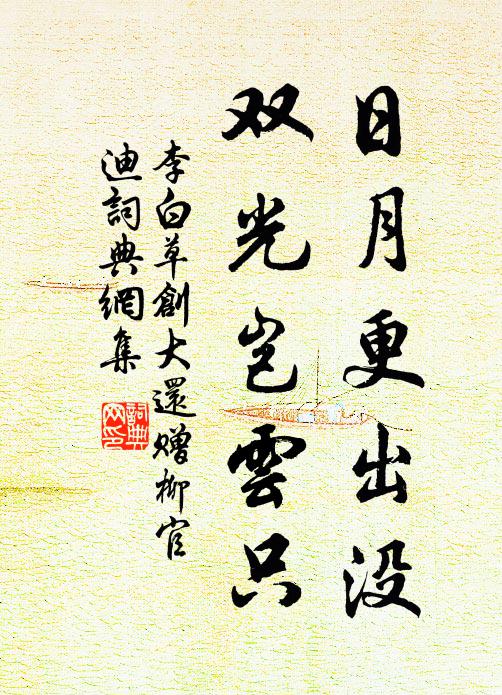 日月更出没
双光岂雲只
李白草創大還赠柳官
迪詞典網集
詞典
网印